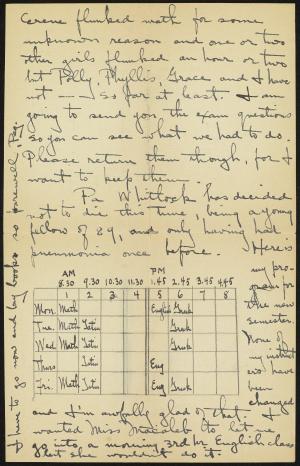 Cerene flunked math for some
unknown reason and one or two
other girls flunked an hour or two
but Polly Phyllis, Grace and I have
not — so far at least. I am
going to send you the exam questions
so you can see what we had to do.
Please return them though, for I
want to keep them.
Pa Whitlock has decided
not to die this time, being a young
fellow of 89, and only having had
pneumonia once before. Here is
my pro-
gram for
the new
semester.
None of
my instruct
ors have
been
changed
AM PM
8.30 9.30 10.30 11.30 1.45 2.45 3.45 4.45
1 2 3 4 5 6 7 8
Mon. Math English Greek
Tue. Math Latin Greek
Wed Math Latin Greek
Thurs Latin Eng
Fri. Math Latin Eng Greek
and I'm awfully glad of that. I
wanted Miss Macaleb to let me
go into a morning 3rd hr English class
but she wouldn't do it.
I have to go now and buy books so farewell,